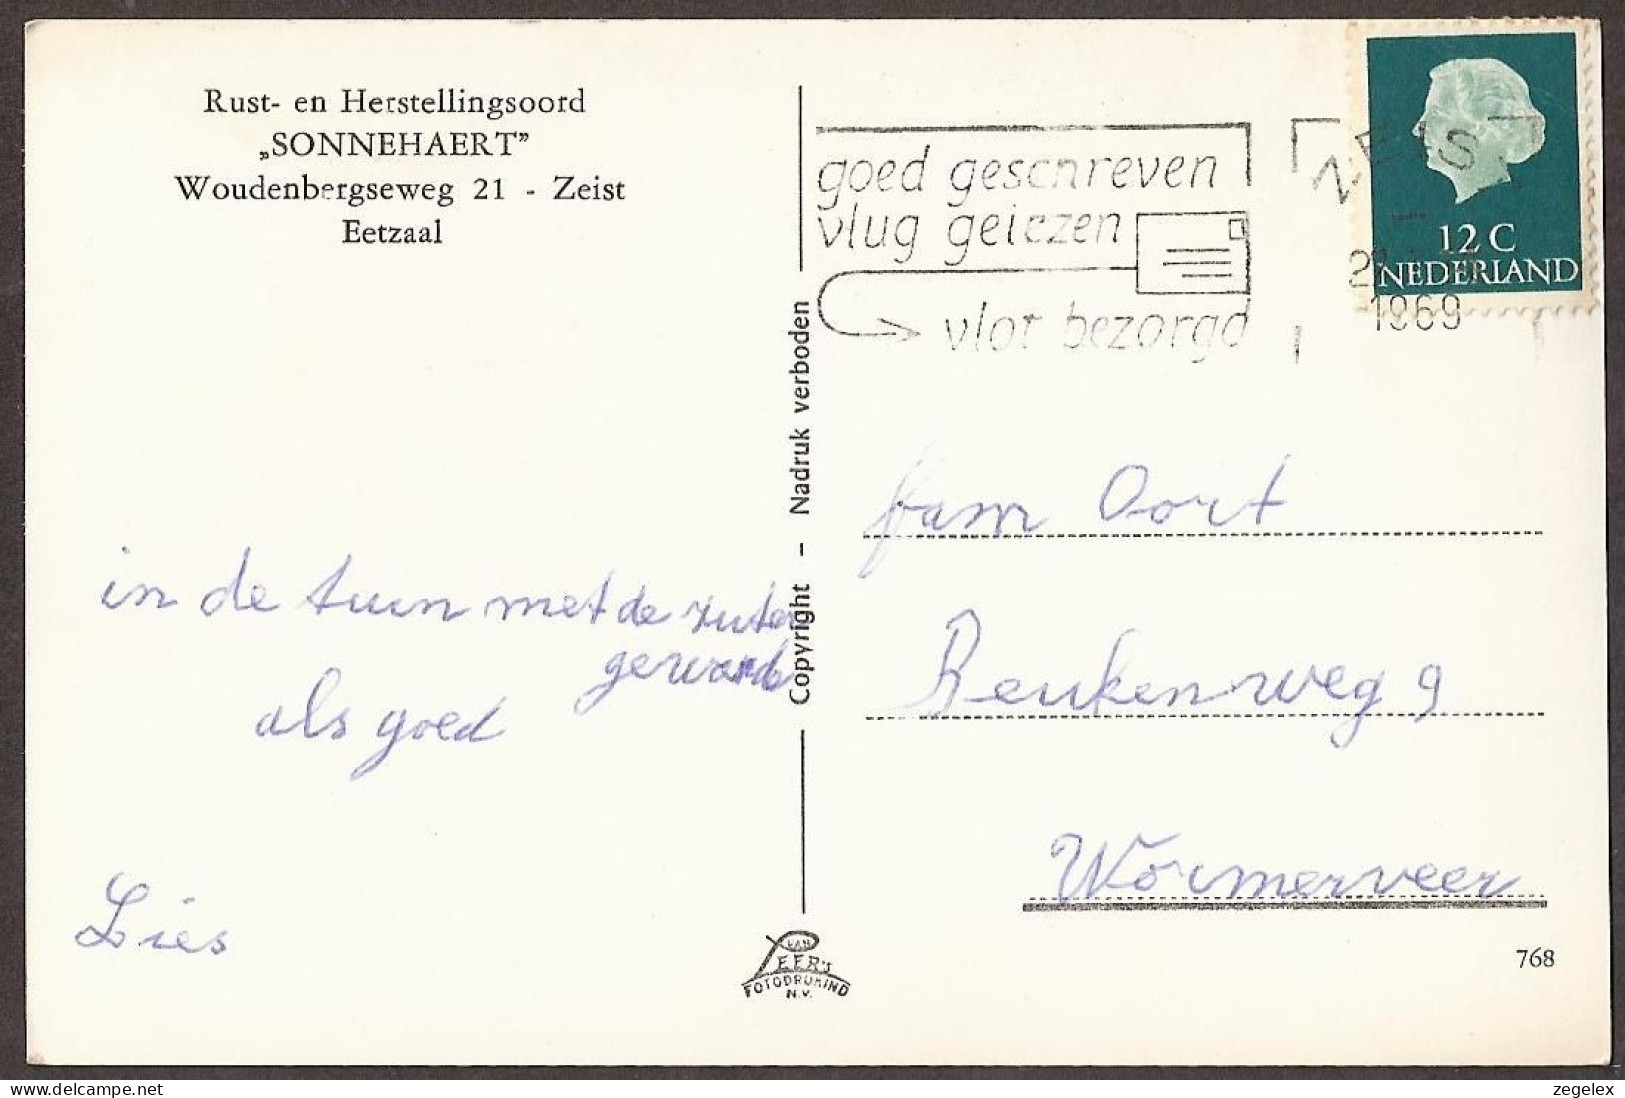 Rust- en Herstellingsoord
„SONNEHAERT”
Woudenbergseweg 21 - Zeist
Eetzaal
goed geschreven
vlug gelezen
vlot bezorgd
ZEIST
1969
12 C
NEDERLAND
Copyright - Nadruk verboden
fam Oort
Beukenweg 9
Wormerveer
in de tuin met de zuster
als goed
Lies
VAN
LEER'S
FOTODRUKIND
N.V.
768
delcampe.net
zegelex